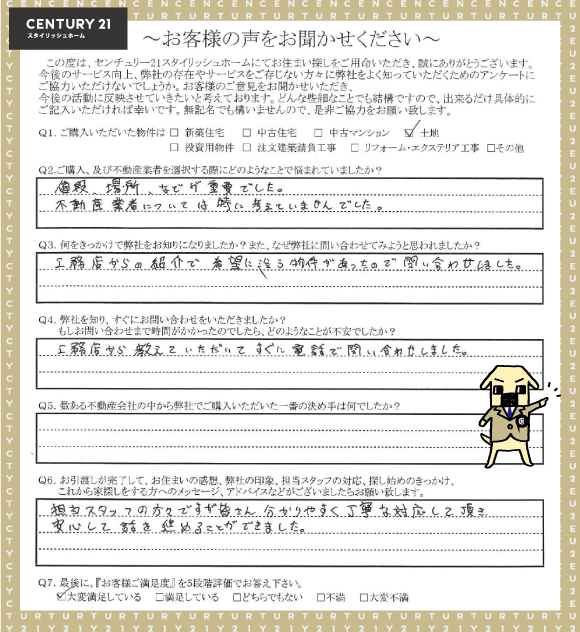 CENTURY 21
スタイリッシュホーム
～お客様の声をお聞かせください～
この度は、センチュリー21スタイリッシュホームにてお住まい探しをご用命いただき、誠にありがとうございます。
今後のサービス向上、弊社の存在やサービスをご存じない方々に弊社をよく知っていただくためのアンケートに
ご協力いただけないでしょうか。お客様のご意見をお聞かせいただき、
今後の活動に反映させていきたいと考えております。どんな些細なことでも結構ですので、出来るだけ具体的に
ご記入いただければ幸いです。無記名でも構いませんので、是非ご協力をお願い致します。
Q1. ご購入いただいた物件は □ 新築住宅 □ 中古住宅 □ 中古マンション ☑ 土地
□ 投資用物件 □ 注文建築請負工事 □ リフォーム・エクステリア工事 □その他
Q2.ご購入、及び不動産業者を選択する際にどのようなことで悩まれていましたか?
値段、場所、などが重要でした。
不動産業者については特に考えていませんでした。
Q3. 何をきっかけで弊社をお知りになりましたか?また、なぜ弊社に問い合わせてみようと思われましたか?
工務店からの紹介で 希望に沿う物件があったので問い合わせしました。
Q4. 弊社を知り、すぐにお問い合わせをいただきましたか?
もしお問い合わせまで時間がかかったのでしたら、どのようなことが不安でしたか?
工務店から教えていただいてすぐに電話で問い合わせしました。
Q5. 数ある不動産会社の中から弊社でご購入いただいた一番の決め手は何でしたか?
Q6. お引渡しが完了して、お住まいの感想、弊社の印象、担当スタッフの対応、探し始めのきっかけ、
これから家探しをする方へのメッセージ、アドバイスなどがございましたらお願い致します。
担当スタッフの方々ですが皆さん分かりやすく丁寧な対応して頂き
安心して話を進めることができました。
Q7. 最後に、『お客様ご満足度』を5段階評価でお答え下さい。
☑大変満足している □満足している □どちらでもない □不満 □大変不満